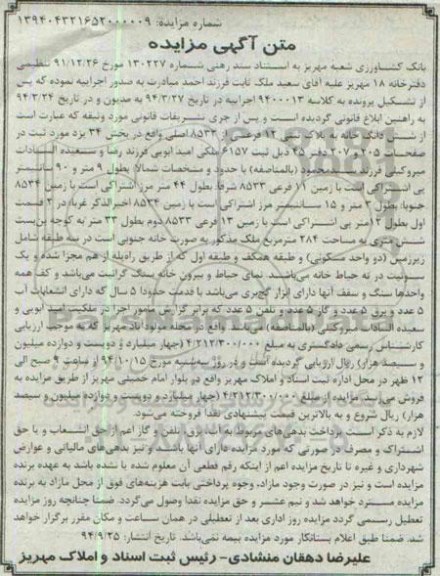 شماره مزایده: ۱۳۹۴۰۴۳۲۱۶۵۲۰۰۰۰۰۹
متن آگهی مزایده
بانک کشاورزی شعبه مهریز به استناد سند رهنی شماره ۱۳۰۲۲۷ مورخ ۹۱/۱۲/۲۶ تنظیمی
دفترخانه ۱۸ مهریز علیه آقای سعید ملک ثابت فرزند احمد مبادرت به صدور اجراییه نموده که پس
از تشکیل پرونده به کلاسه ۹۴۰۰۰۱۳ اجراییه در تاریخ ۹۴/۳/۲۷ به مدیون و در تاریخ ۹۴/۳/۲۴
به راهنین ابلاغ قانونی گردیده است و پس از جری تشریفات قانونی مورد وثیقه که عبارت است
از شش دانگ خانه به پلاک ثبتی ۱۲ فرعی از ۸۵۳۳ اصلی واقع در بخش ۳۴ یزد مورد ثبت در
صفحات ۲۰۵ و ۲۰۷ دفتر ۴۵ ذیل ثبت ۶۱۵۷ ملکی امید ایوبی فرزند رضا و سعیده السادات
میروکیلی فرزند سیدمحمود (بالمناصفه) با حدود و مشخصات شمالا: بطول ۹ متر و ۹۰ سانتیمتر
پی اشتراکی است با زمین ۱۱ فرعی ۸۵۳۳ شرقا: بطول ۴۴ متر مرز اشتراکی است با زمین ۸۵۳۴
جنوبا: بطول ۳ متر و ۱۵ سانتیمتر مرز اشتراکی است با زمین ۸۵۳۴ اخیرالذکر غربا: در ۲ قسمت
اول بطول ۱۲ متر پی اشتراکی است با زمین ۱۳ فرعی ۸۵۳۳ دوم بطول ۳۳ متر به کوچه بن‌بست
شش متری به مساحت ۲۸۴ مترمربع ملک مذکور به صورت خانه جنوبی است در سه طبقه شامل
زیرزمین (دو واحد مسکونی) و طبقه همکف و طبقه اول که از طریق راه‌پله از هم مجزا شده و یک
سوئیت در ته حیاط خانه می‌باشد. نمای حیاط و بیرون خانه سنگ گرانیت می‌باشد و کف همه
واحدها سنگ و سقف آنها دارای ابزار گچبری می‌باشد با قدمت حدودا ۵ سال که دارای انشعابات آب
۵ عدد و برق ۵ عدد و گاز ۵ عدد و تلفن ۵ عدد که برابر گزارش مامور اجرا در ملکیت امید ایوبی و
سعیده السادات میروکیلی (بالمناصفه) می‌باشد واقع در محله مودآباد مهریز که به موجب ارزیابی
کارشناس رسمی دادگستری به مبلغ ۴/۲۱۲/۳۰۰/۰۰۰ (چهار میلیارد و دویست و دوازده میلیون
و سیصد هزار) ریال ارزیابی گردیده است و در روز سه‌شنبه مورخ ۹۴/۱۰/۱۵ از ساعت ۹ صبح الی
۱۲ ظهر در محل اداره ثبت اسناد و املاک مهریز واقع در بلوار امام خمینی مهریز از طریق مزایده به
فروش می‌رسد. مزایده از مبلغ ۴/۲۱۲/۳۰۰/۰۰۰ (چهار میلیارد و دویست و دوازده میلیون و سیصد
هزار) ریال شروع و به بالاترین قیمت پیشنهادی نقدا فروخته می‌شود.
لازم به ذکر است پرداخت بدهی‌های مربوط به آب، برق، تلفن و گاز اعم از حق انشعاب و یا حق
اشتراک و مصرف در صورتی که مورد مزایده دارای آنها باشد و نیز بدهی‌های مالیاتی و عوارض
شهرداری و غیره تا تاریخ مزایده اعم از اینکه رقم قطعی آن معلوم شده یا نشده باشد به عهده برنده
مزایده است و نیز در صورت وجود مازاد، وجوه پرداختی بابت هزینه‌های فوق از محل مازاد به برنده
مزایده مسترد خواهد شد و نیم عشر و حق مزایده نقدا وصول می‌گردد. ضمنا چنانچه روز مزایده
تعطیل رسمی گردد مزایده روز اداری بعد از تعطیلی در همان ساعت و مکان مقرر برگزار خواهد
شد. ضمنا طبق اعلام بستانکار مورد مزایده بیمه نمی‌باشد. تاریخ انتشار: ۹۴/۹/۲۵
علیرضا دهقان منشادی- رئیس ثبت اسناد و املاک مهریز